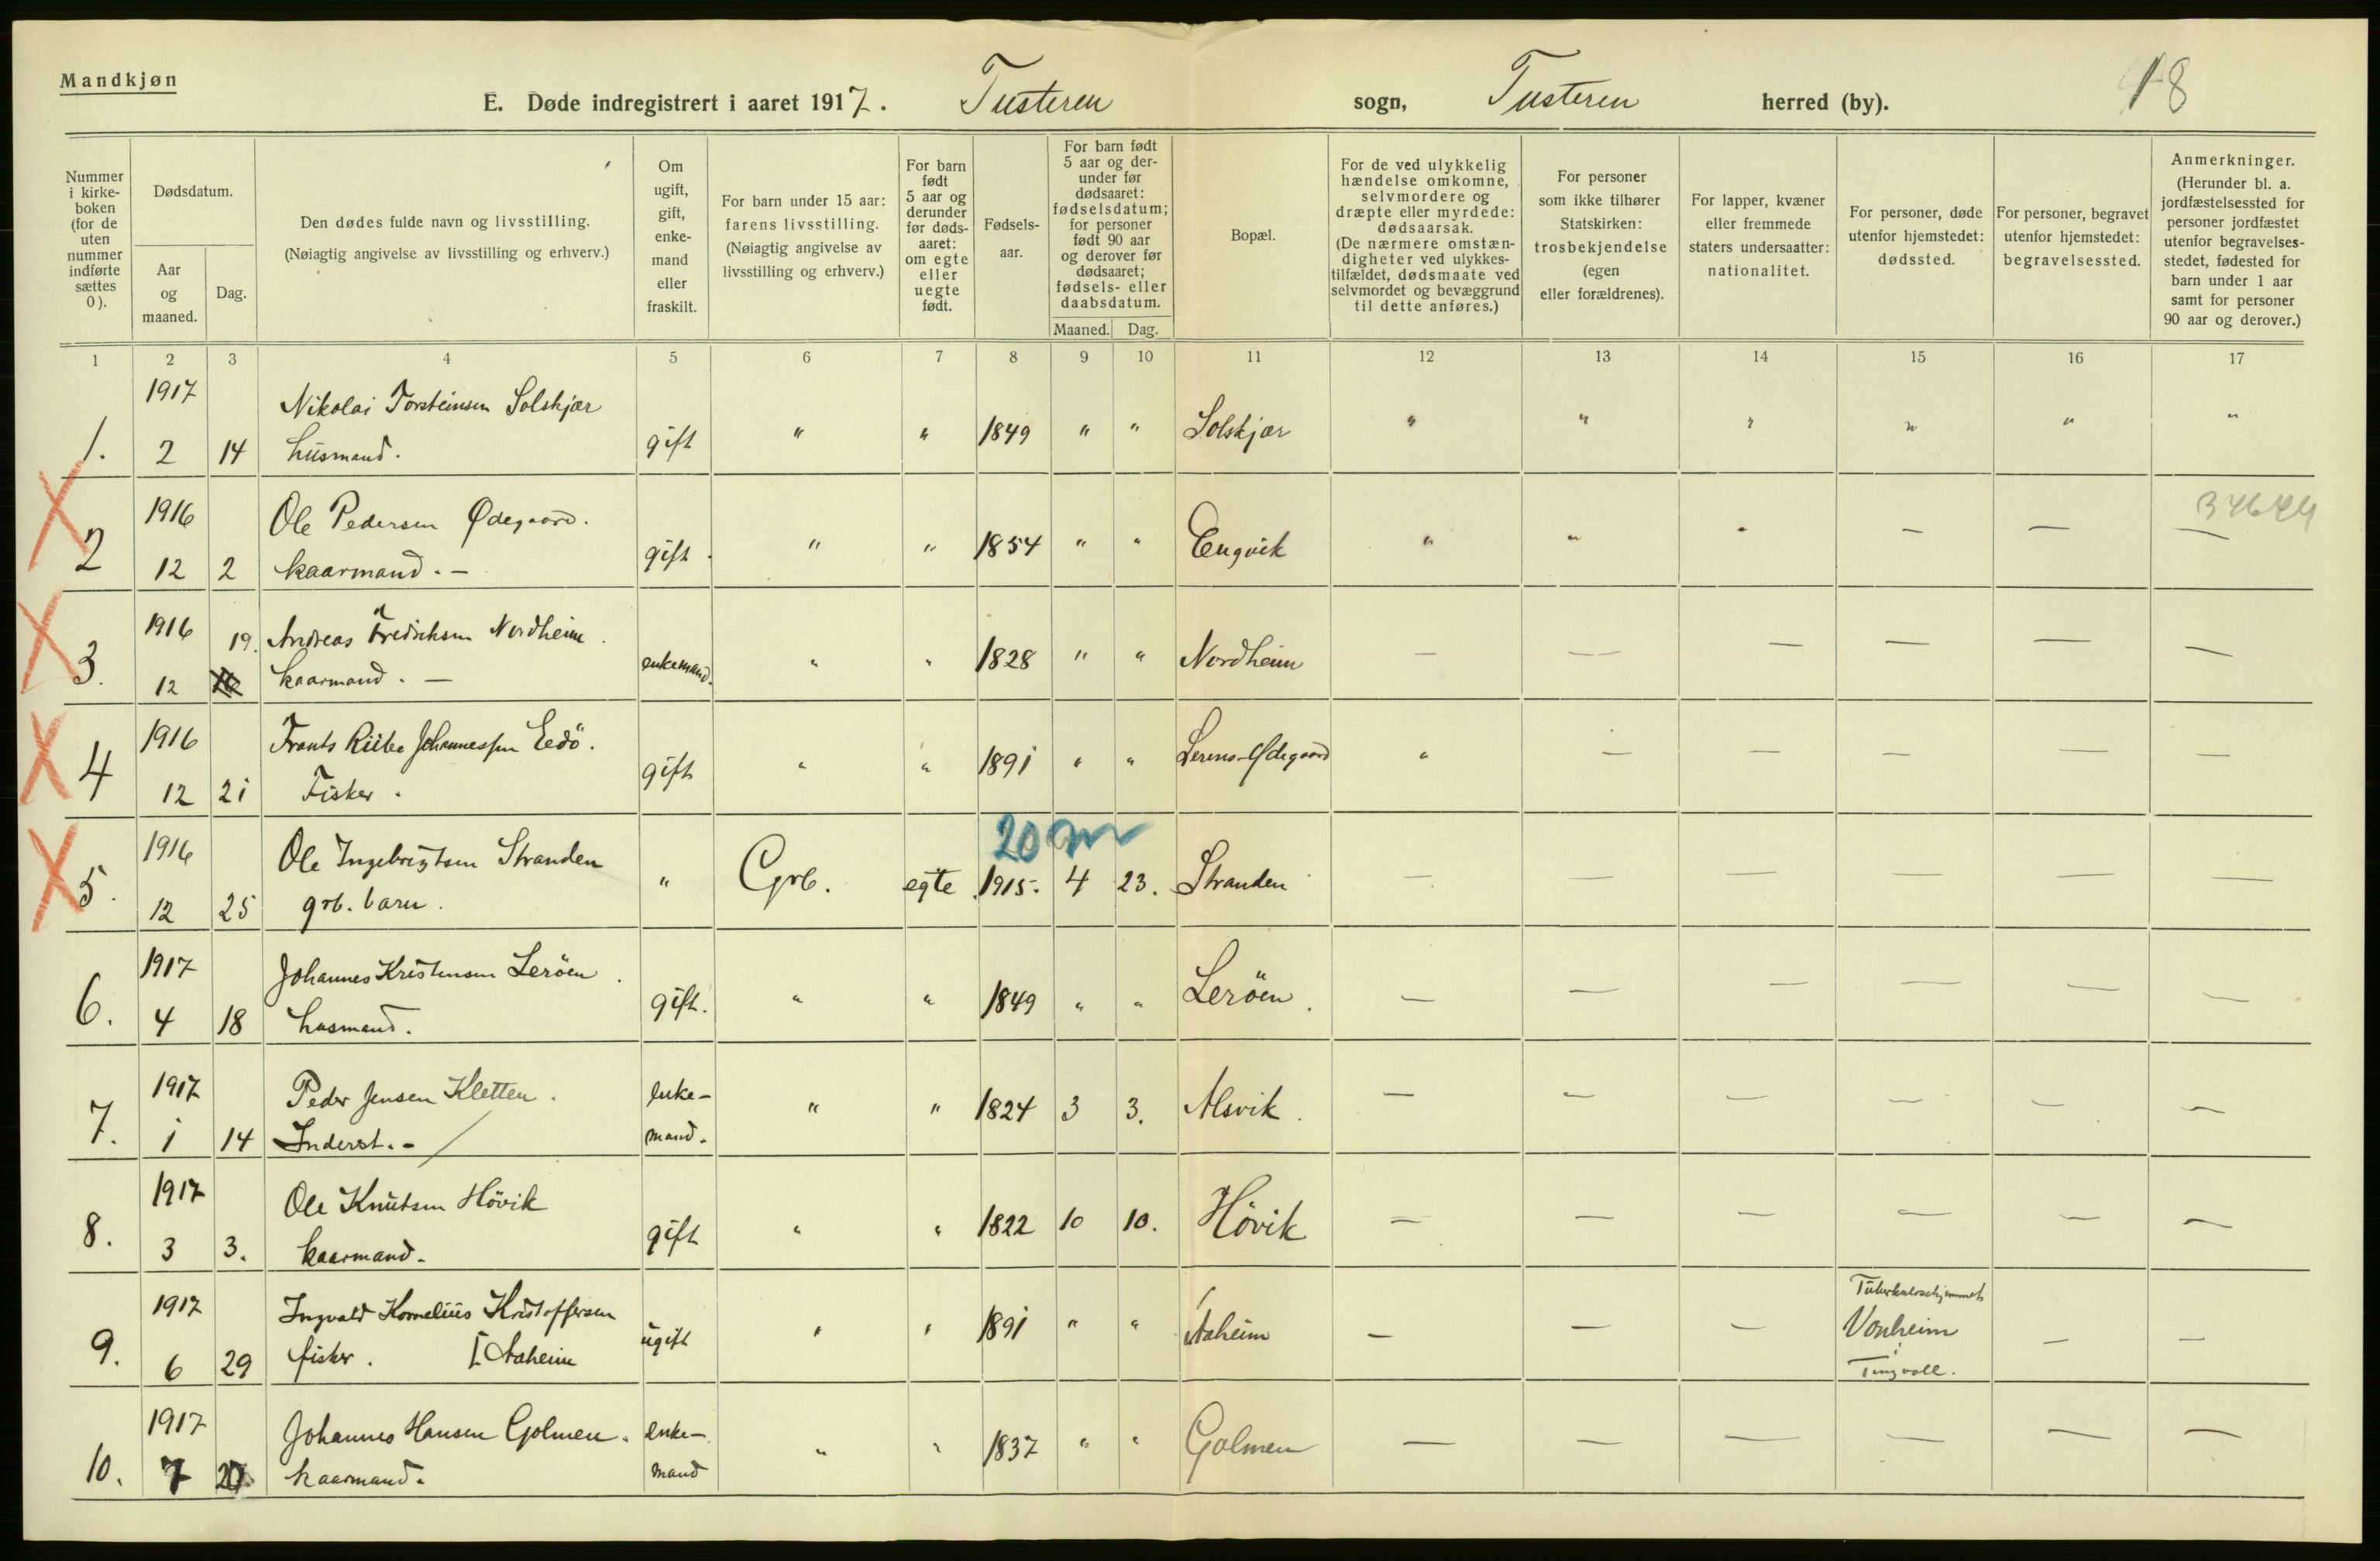 Mandkjøn
E. Døde indregistrert i aaret 1917. Tusteren sogn, Tusteren herred (by).
18
Nummer i kirke-boken (for de uten nummer indførte sættes 0).
Dødsdatum.
Aar og maaned.
Dag.
Den dødes fulde navn og livsstilling.
(Nøiagtig angivelse av livsstilling og erhverv.)
Om ugift, gift, enke-mand eller fraskilt.
For barn under 15 aar: farens livsstilling. (Nøiagtig angivelse av livsstilling og erhverv.)
For barn født 5 aar og derunder før døds-aaret: om egte eller uegte født.
Fødsels-aar.
For barn født 5 aar og der-under før dødsaaret: fødselsdatum; for personer født 90 aar og derover før dødsaaret; fødsels- eller daabsdatum.
Maaned. Dag.
Bopæl.
For de ved ulykkelig hændelse omkomne, selvmordere og dræpte eller myrdede: dødsaarsak. (De nærmere omstæn-digheter ved ulykkes-tilfældet, dødsmaate ved selvmordet og bevæggrund til dette anføres.)
For personer som ikke tilhører Statskirken: trosbekjendelse (egen eller forældrenes).
For lapper, kvæner eller fremmede staters undersaatter: nationalitet.
For personer, døde utenfor hjemstedet: dødssted.
For personer, begravet utenfor hjemstedet: begravelsessted.
Anmerkninger. (Herunder bl. a. jordfæstelsessted for personer jordfæstet utenfor begravelses-stedet, fødested for barn under 1 aar samt for personer 90 aar og derover.)
1 2 3 4 5 6 7 8 9 10 11 12 13 14 15 16 17
1917 Nikolai Torsteinsen Solskjær
1. 2 14 husmand. gift " " 1849 " " Solskjær " " " " " "
1916 Ole Pedersen Ødegaard.
2 12 2 kaarmand. — gift " " 1854 " " Engvik " " " — — —
1916 19. Andreas Fredriksen Nordheim.
3. 12 kaarmand. — enkemand. " " 1828 " " Nordheim — — — — — —
1916 Frants Johannessen Eedö.
4 12 21 Fisker. gift " " 1891 " " Lerens-Ødegaard " — — — — —
20 m
1916 Ole Ingebrigtsen Stranden
5. 12 25 grb. barn. " Grb. egte 1915. 4 23. Stranden — — — — — —
1917 Johannes Kristensen Leröen.
6. 4 18 husmand. gift. " " 1849 " " Leröen. — — — — — —
1917 Peder Jensen Kletten. enke-
7. 1 14 Inderst. - mand. " " 1824 3 3. Alsvik. — — — — — —
1917 Ole Knutsen Hövik
8. 3 3. kaarmand. gift " " 1822 10 10. Hövik — — — — — —
1917 Ingvald Kornelius Kristoffersen
9. 6 29 fisker. [Aaheim ugift " " 1891 " " Aaheim — — — Vonheim i Tingvoll. — —
1917 Johannes Hansen Golmen. enke-
10. 7 20 kaarmand. mand " " 1837 " " Golmen — — — — — —